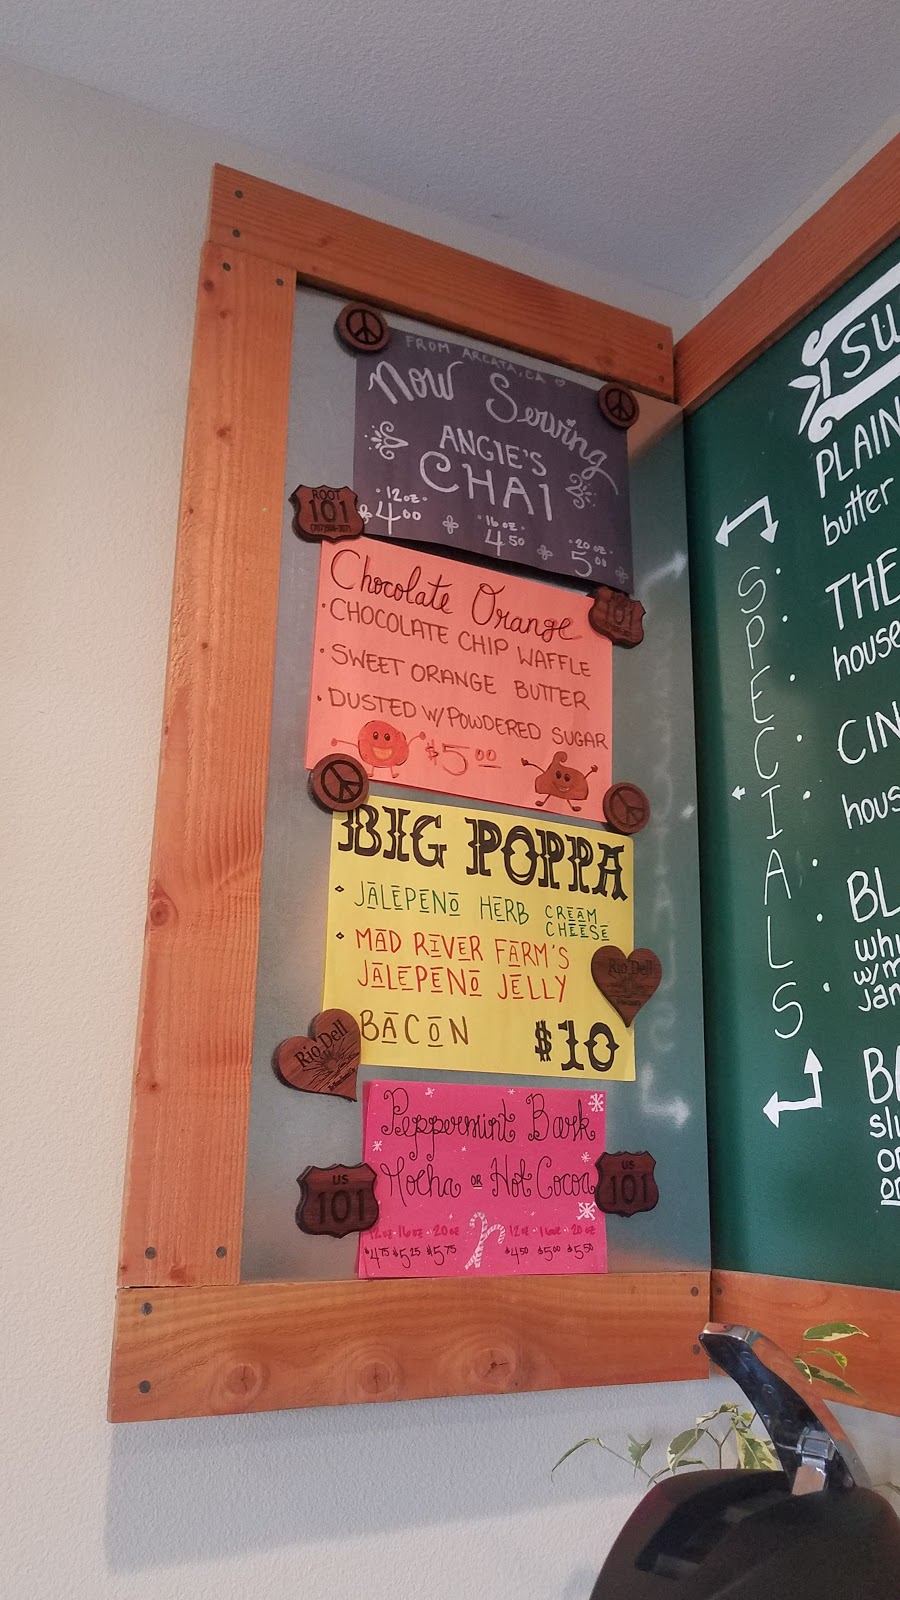 FROM ARCATA, CA
Now Serving
ANGIE'S
CHAI
12 oz. 16 oz. 20 oz.
4.00 4.50 5.00
ROOT
101
101
Chocolate Orange
• CHOCOLATE CHIP WAFFLE
• SWEET ORANGE BUTTER
• DUSTED W/POWDERED SUGAR
$5.00
BIG POPPA
• JALEPENO HERB CREAM CHEESE
• MAD RIVER FARM'S
JALEPENO JELLY
BACON $10
Rio Dell
Rio Dell
Peppermint Bark
Mocha OR Hot Cocoa
12oz. 16oz. 20oz 12oz. 16oz. 20oz
$4.75 $5.25 $5.75 $4.50 $5.00 $5.50
US
101
US
101
SPECIALS
PLAIN
butter
THE
house
CIN
hous
BL
whi
w/m
Jam
BA
slu
or
or